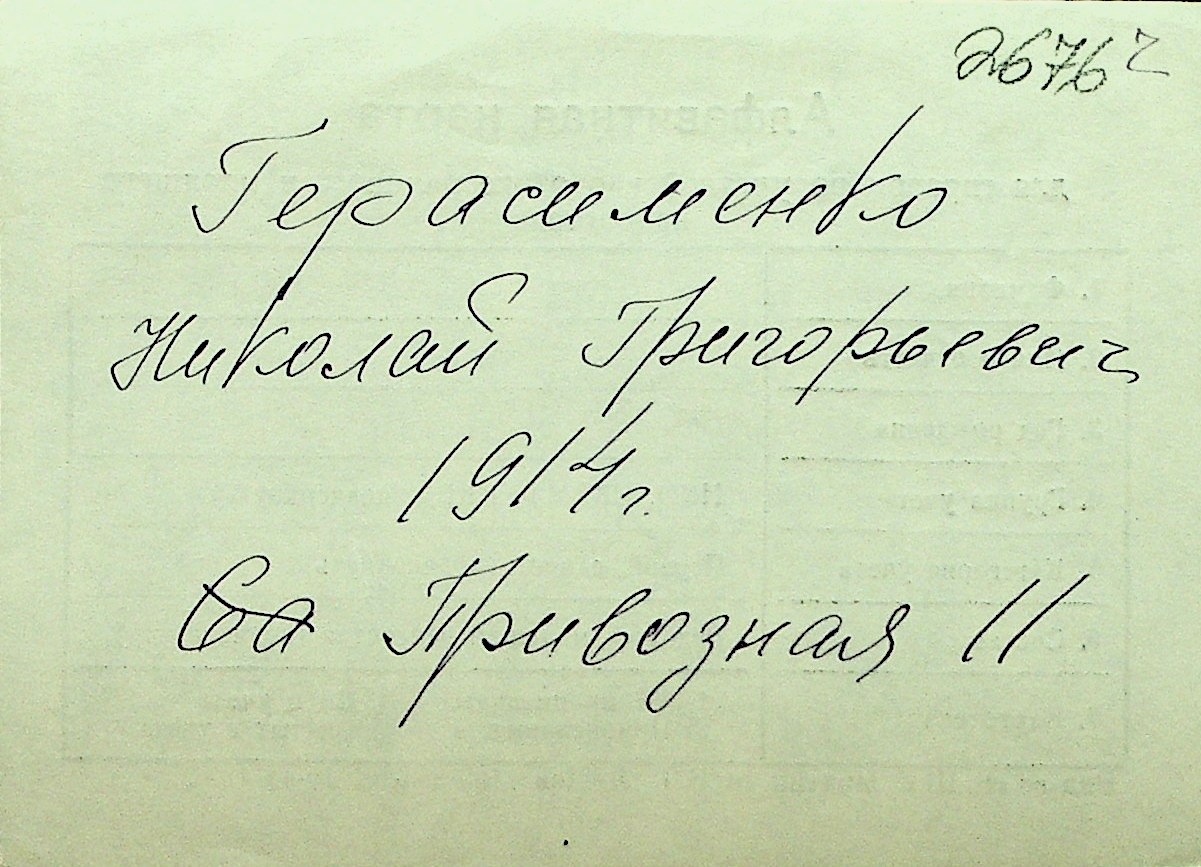 2676ч
Герасименко
Николай Григорьевич
1914г.
Привозная 11